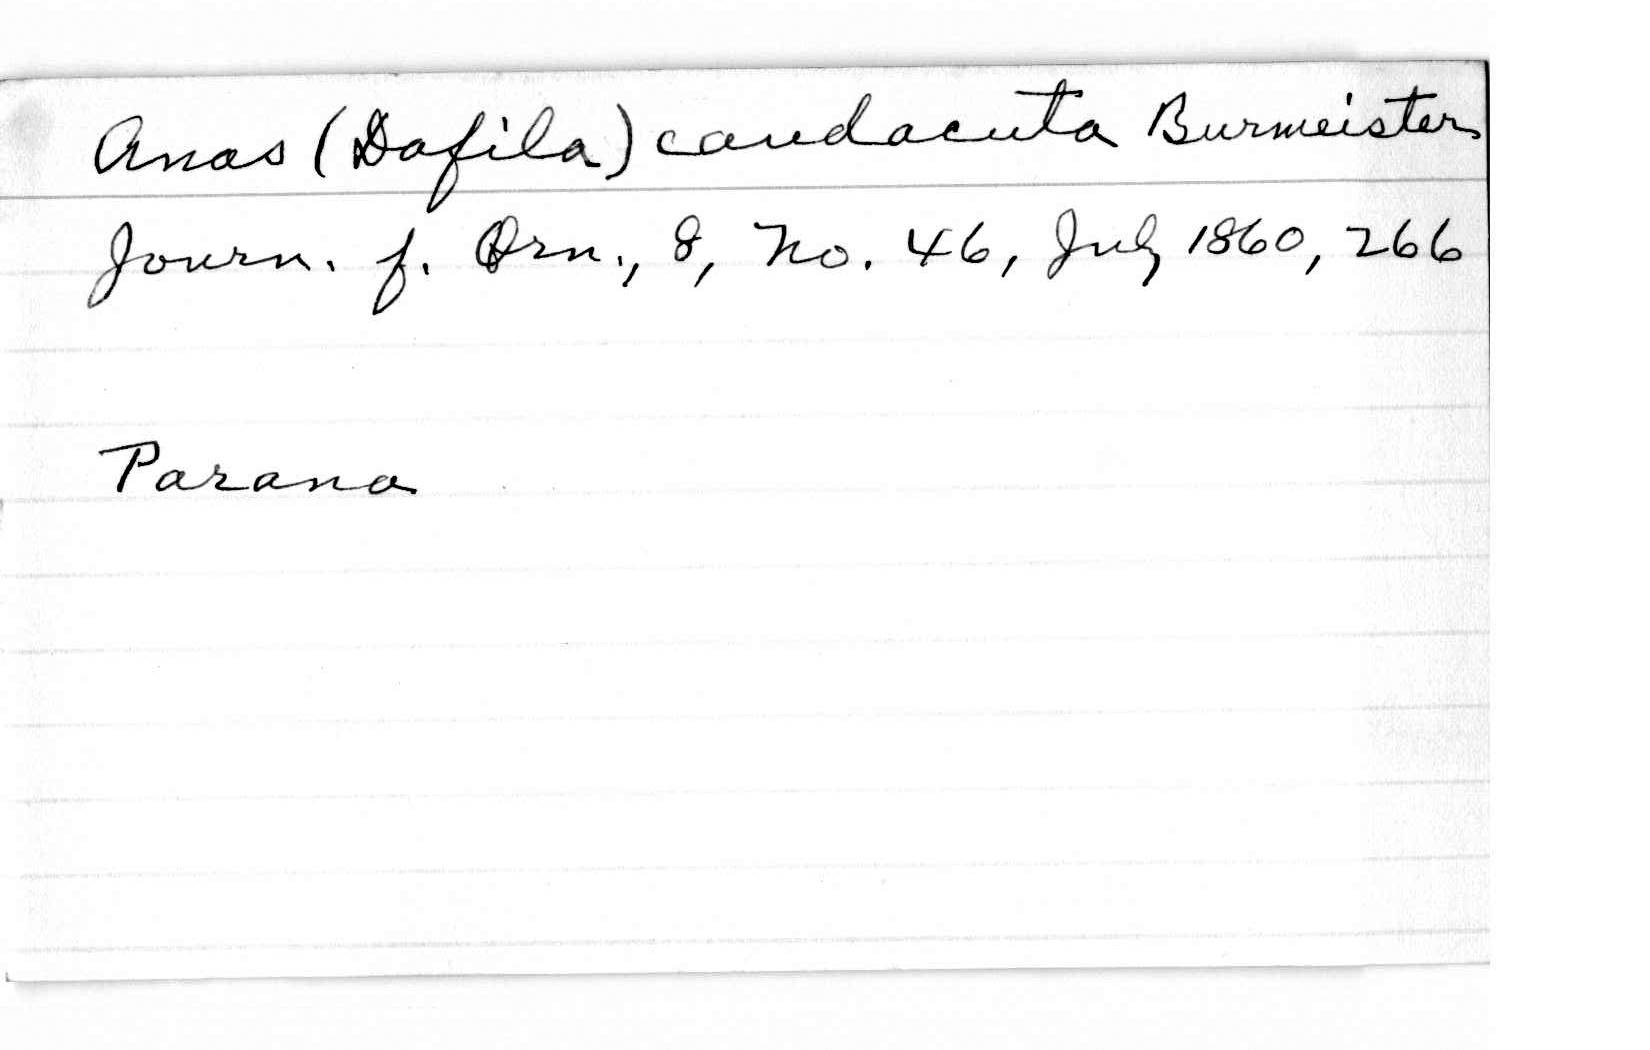 Anas (Dafila) caudacuta Burmeister
Journ. f. Orn., 8, No. 46, July 1860, 266
Parana